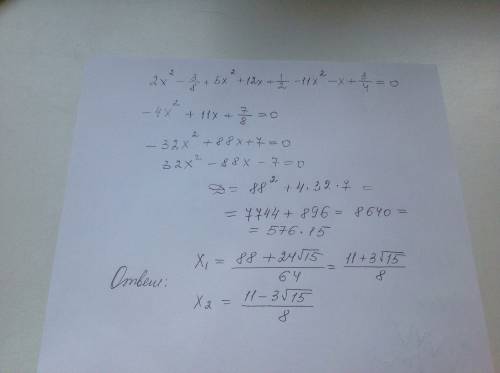 2x² - 3/8 + 5x² + 12x + 1/2 - 11x² - x + 3/4 = 0
-4x² + 11x + 7/8 = 0
-32x² + 88x + 7 = 0
32x² - 88x - 7 = 0
D = 88² + 4·32·7 =
= 7744 + 896 = 8640 =
= 576·15
Ответ: x₁ = (88 + 24√15)/64 = (11 + 3√15)/8
x₂ = (11 - 3√15)/8